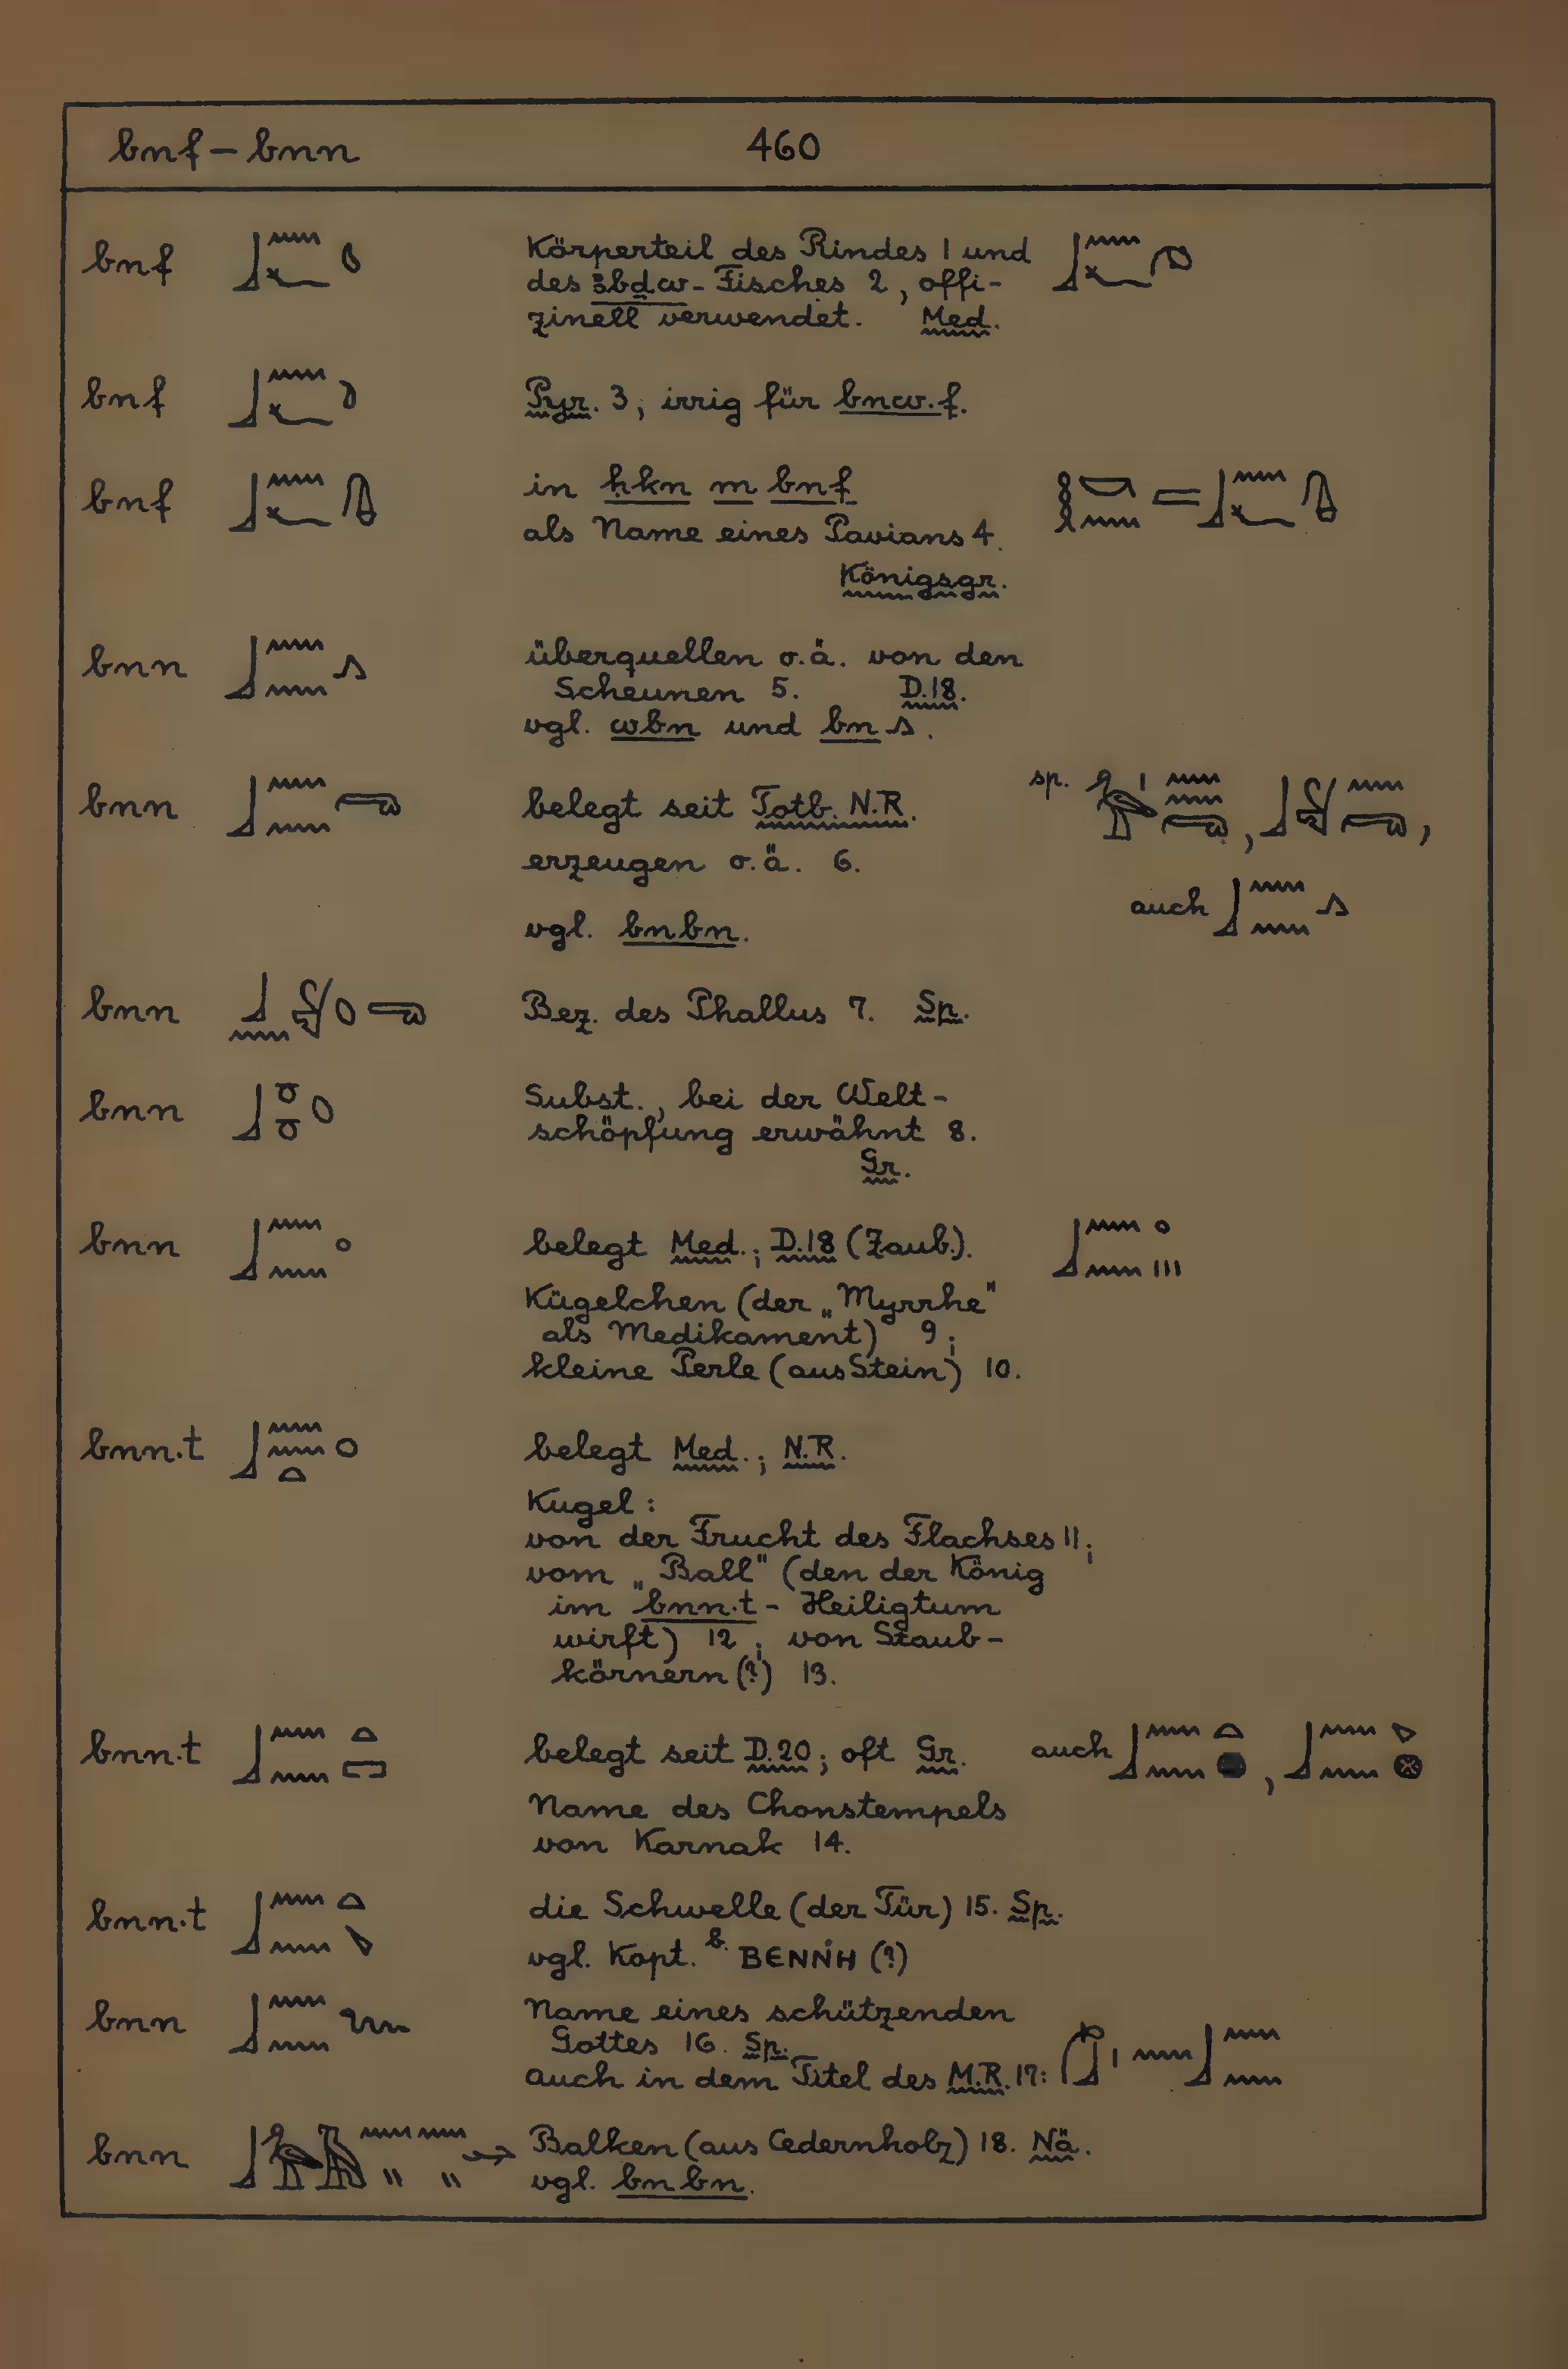 bnf – bnn 460
bnf Körperteil des Rindes 1 und
des ꜣbḏw - Fisches 2, offi-
zinell verwendet. Med.
bnf Pyr. 3; irrig für bnw.f.
bnf in ḥkn m bnf
als Name eines Pavians 4.
Königsgr.
bnn überquellen o.ä. von den
Scheunen 5. D.18.
vgl. wbn und bn 𓂻.
bnn belegt seit Totb. N.R. sp. , ,
erzeugen o.ä. 6.
auch
vgl. bnbn.
bnn Bez. des Phallus 7. Sp.
bnn Subst., bei der Welt-
schöpfung erwähnt 8.
Gr.
bnn belegt Med.; D.18 (Zaub.).
Kügelchen (der „Myrrhe"
als Medikament) 9;
kleine Perle (aus Stein) 10.
bnn.t belegt Med.; N.R.
Kugel:
von der Frucht des Flachses 11;
vom „Ball" (den der König
im bnn.t - Heiligtum
wirft) 12; von Staub-
körnern (?) 13.
bnn.t belegt seit D.20; oft Gr. auch ,
Name des Chonstempels
von Karnak 14.
bnn.t die Schwelle (der Tür) 15. Sp.
vgl. Kopt. b. ⲂⲈⲚⲚⲎ (?)
bnn Name eines schützenden
Gottes 16. Sp.
auch in dem Titel des M.R. 17:
bnn Balken (aus Cedernholz) 18. Nä.
vgl. bnbn.